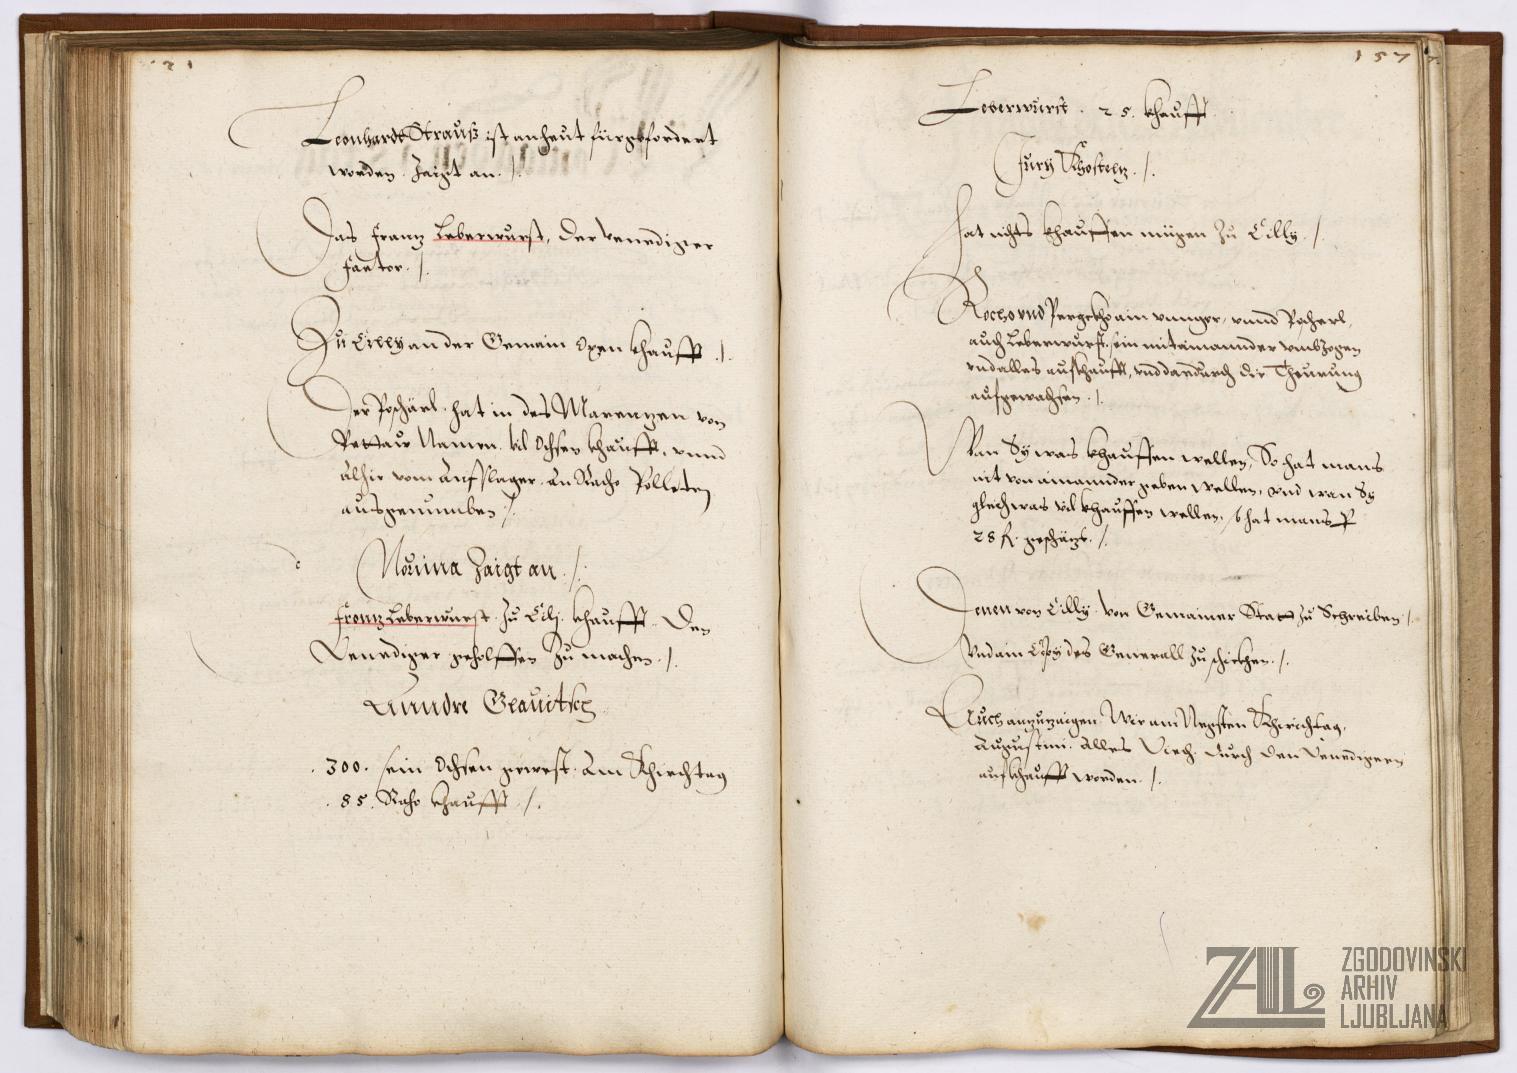 Leonhardt Strauß ist anheut fürgefordert
worden. Zaigt an ./.
Das Frantz Leberwurst, der Venediger
Factor ./.
Zu Cilly an der Gemain Oxen khaufft ./.
Der Poschärl hat in des Marentzen von
Pettaw Namen vil Ochsen khaufft, vnnd
Alhie vom Aufslager An Racho Polleten
ausgenumben ./.
Morina Zaigt an ./.
Frantz Leberwurst Zu Cili khaufft. Den
Venediger geholffen Zu machen ./.
Anndre Glauitsch
.300. sein Ochsen gewest. Am Khirchtag
.85. Racho khaufft ./.
157
Leberwurst . 25. khaufft
Jury Khosteltz ./.
Hat nichts khauffen mügen Zu Cilly ./.
Rocho vnd Pergekho ain vnnger, vnnd Pocherl,
auch Leberwurst, sein mitainannder vmbzogen
vnd alles aufkhaufft, vnd dardurch die Theurung
aufgewachsen ./.
Wan Sy was khauffen wellen, So hat mans
nit von ainannder geben wellen, vnd wan Sy
gleich was vil khauffen wellen, so hat mans P
28 fl. geschätzt ./.
Denen von Cilly von Gemainer Statt zu Schreiben ./.
Vnd ain Copy des Generall zuschickhen ./.
Auch anzuzaigen Wie am Negsten Khirchtag,
Augustini Alles Viech durch den Venedigern
aufkhaufft worden ./.
ZAL ZGODOVINSKI
ARHIV
LJUBLJANA